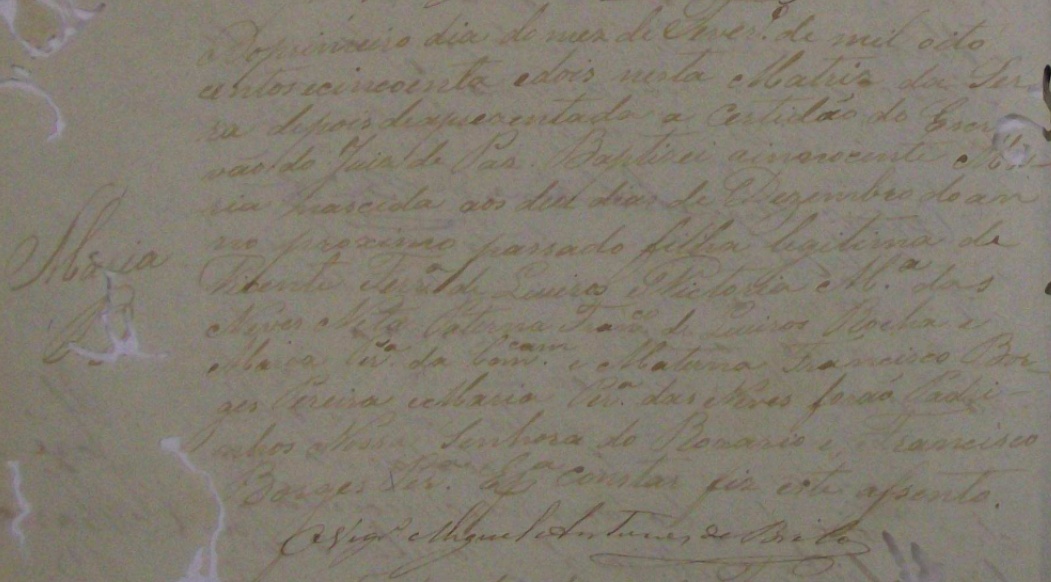 Ao primeiro dia do mez de Fever.º de mil oito
centos e cincoenta e dois nesta Matriz da Ser
ra depois de apresentada a Certidão do Escri
vão do Juiz de Paz Baptizei a innocente Ma
ria nascida aos dez dias de Dezembro do an
no proximo passado filha legitima de
Maria
Vicente Ferr.ª de Queiros e Victoria M.ª das
Neves Neta Paterna Fran.co de Queiros Rocha e
Maria Per.ª da Com.cam e Materna Francisco Bor
ges Pereira e Maria Per.ª das Neves forão Padri
nhos Nossa Senhora do Rozario e Francisco
Borges Per.ª E p.ª constar fiz este assento.
O Vigr.º Miguel Antunes de Brito